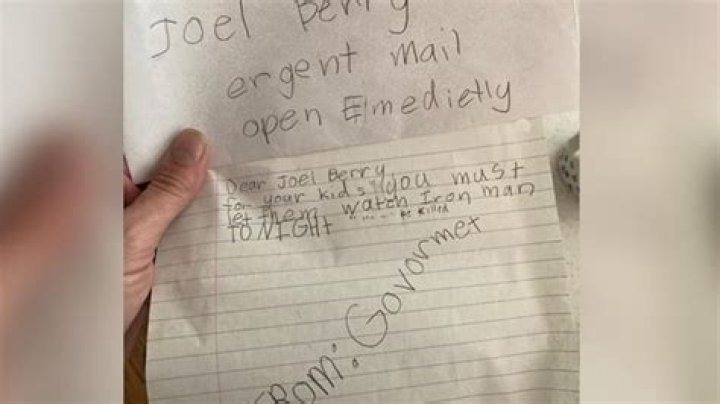 Joel Berry
ergent mail
open Emedietly
Dear Joel Berry
for your kids you must
let them watch Iron man
TONIGHT be killed
FROM: Govormet